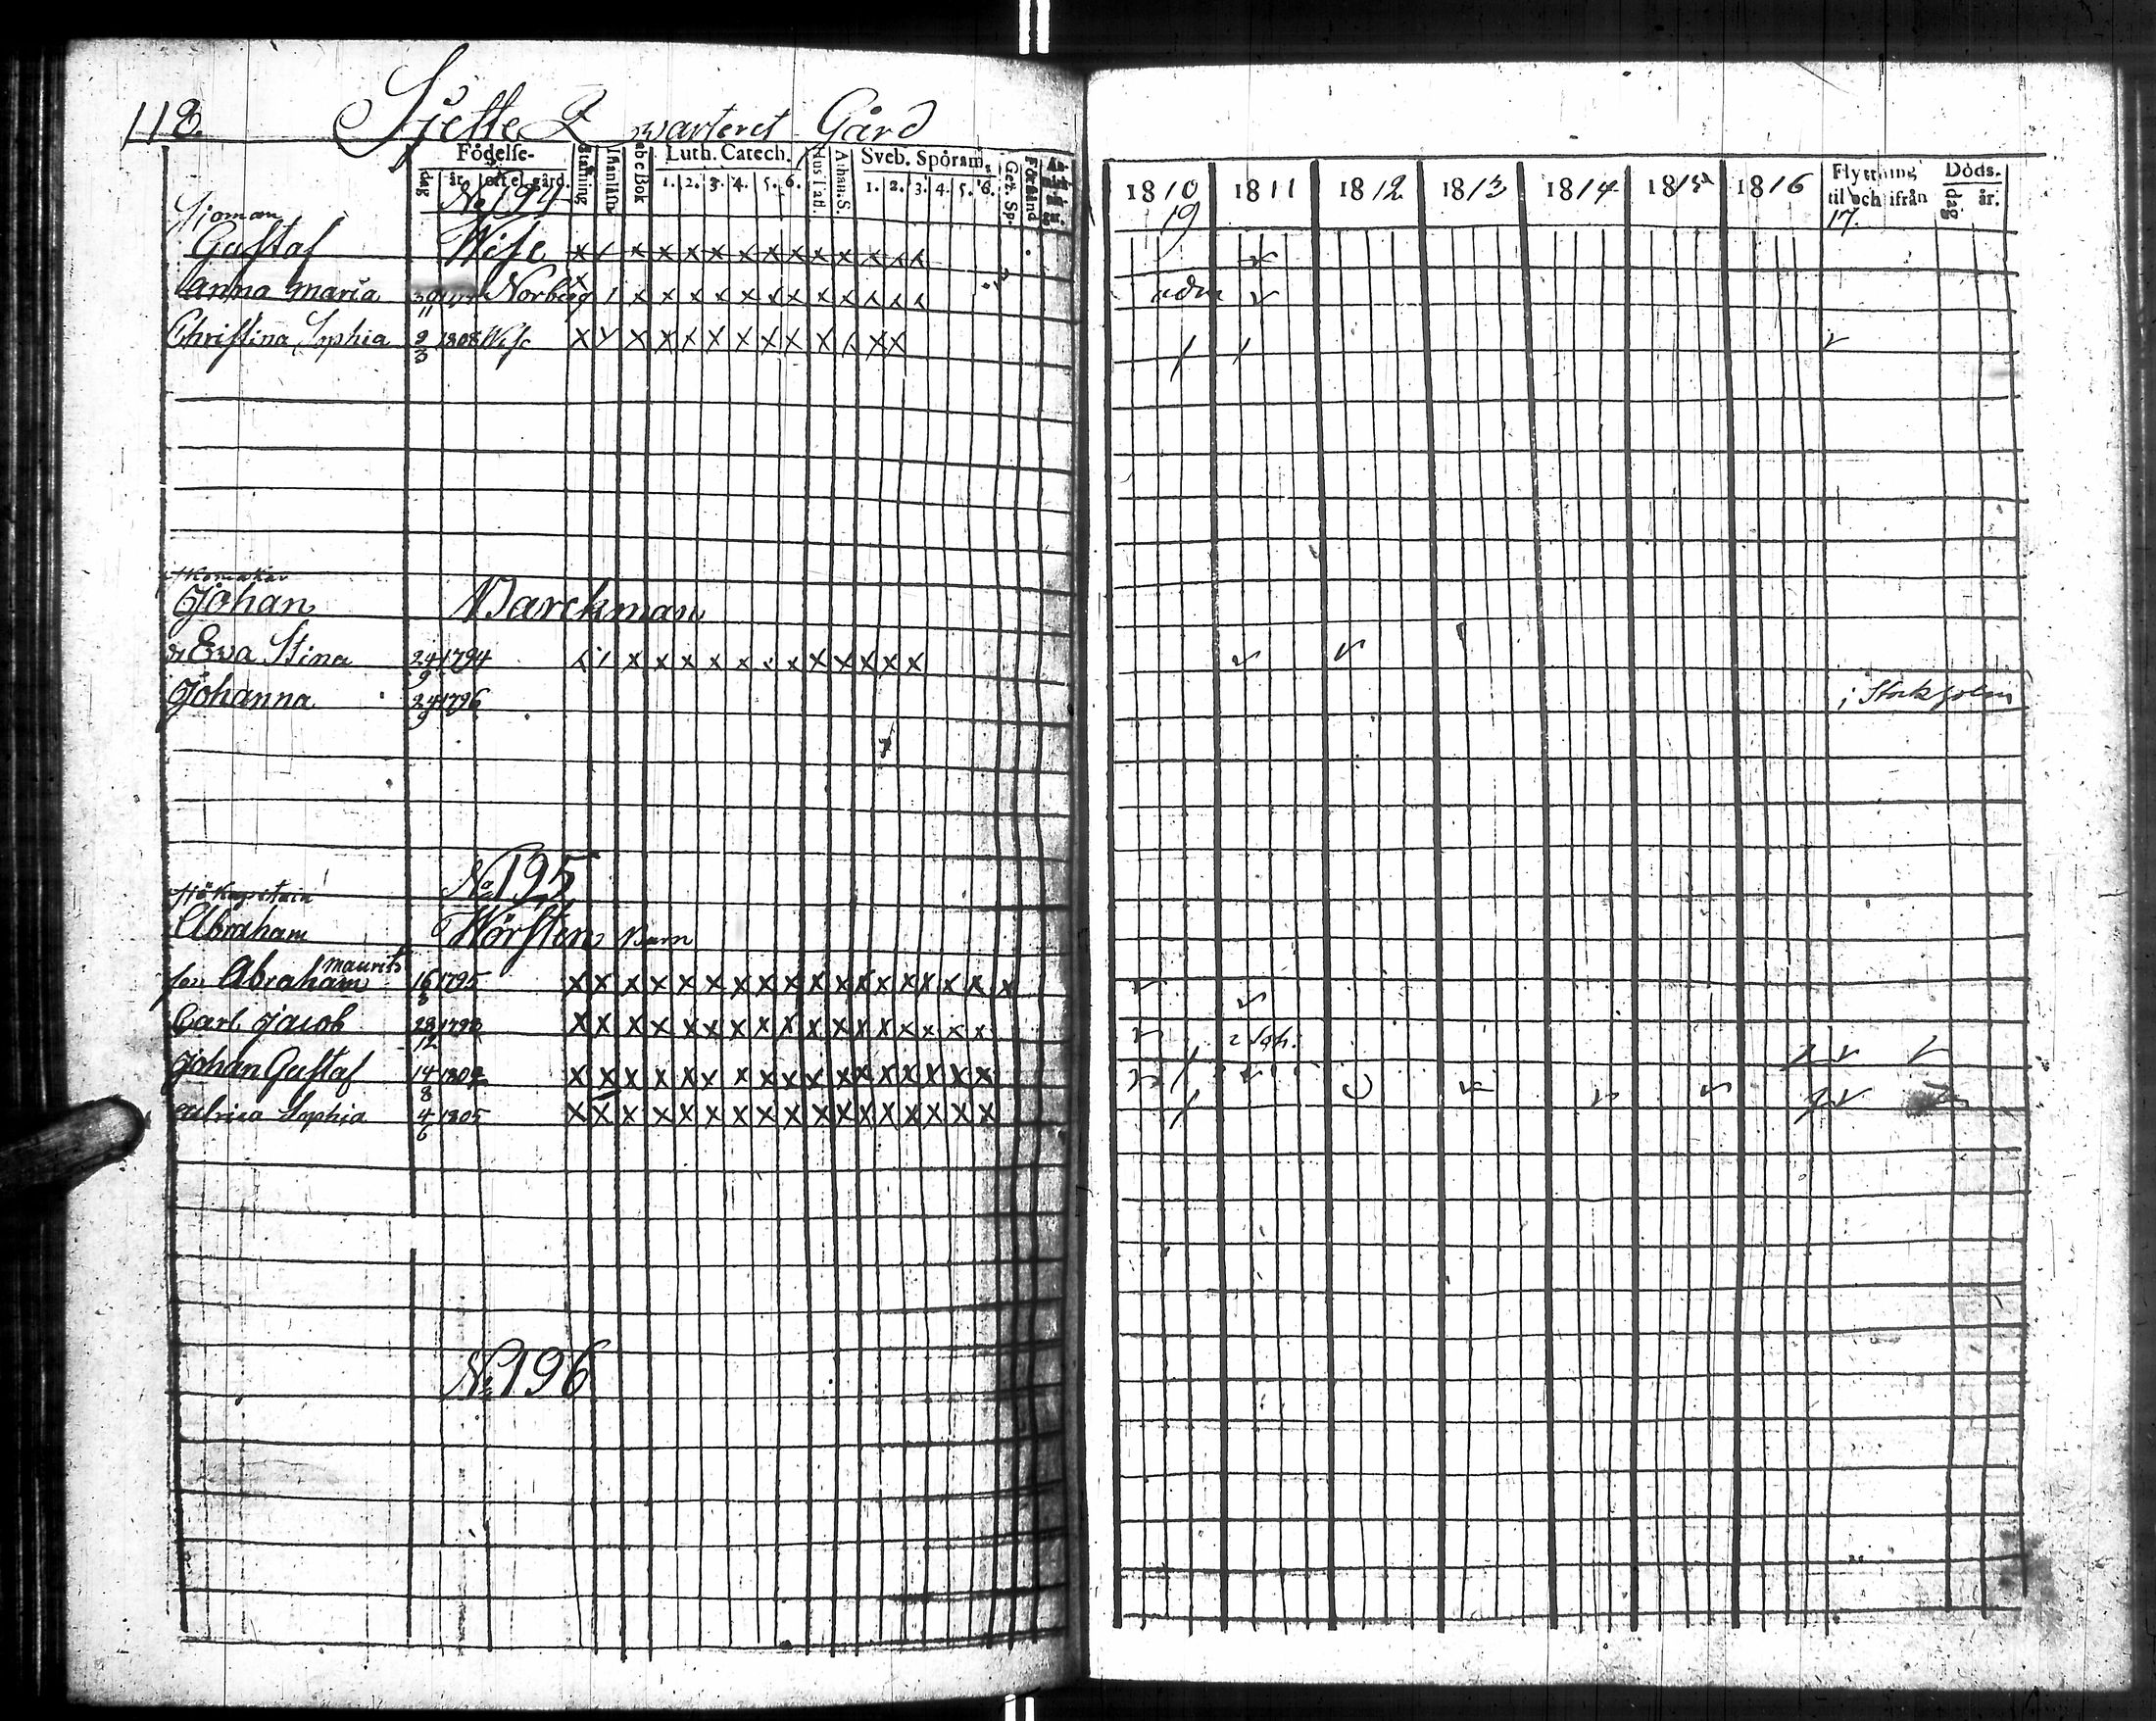 118.
Sjette Qwarteret Gård
Födelse-
dag
år.
ort el. gård.
Stafning
Innanläsn
abcBok
Luth. Catech.
1. 2. 3. 4. 5. 6.
Hus Tafl.
Athan. S.
Sveb. Spörsm.
1. 2. 3. 4. 5. 6.
Ger. Sp.
Förstånd
An-
märk-
nin-
gar.
No 194
Sjöman
Gustaf Wise x x x x x x x x x x x x x
Anna Maria 30 11 Norberg x x x x x x x x x x x x
Christina Sophia 9 3 1808 Wise x x x x x x x x x x x x x
skomakar
Johan Barckman
Ewa Stina 24 9 1794 x x x x x x x x x x x x
Johanna 24 9 1796
No 195
sjö Kapitain
Abraham Wörsten Barn
Maurits
son Abraham 16 8 1795 x x x x x x x x x x x x x x x x x x
Carl Jacob 28 12 1798 x x x x x x x x x x x x x x x x x
Johan Gustaf 14 8 1802 x x x x x x x x x x x x x x x x x
Ulrica Sophia 4 6 1805 x x x x x x x x x x x x x x x x x
No 196
1810 1811 1812 1813 1814 1815 1816
19
Flyttning
til och ifrån
17.
Döds-
dag
år.
adm
i Stockholm